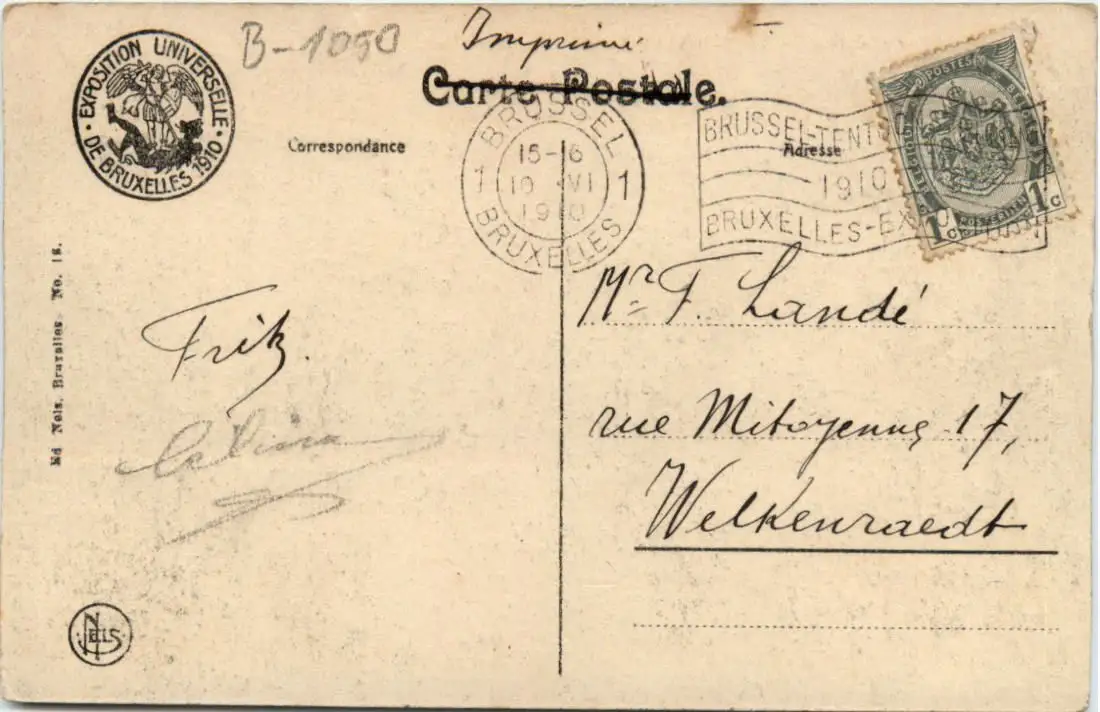 B-1090
Imprimé
Carte Postale.
· EXPOSITION UNIVERSELLE ·
DE BRUXELLES 1910
Correspondance
Adresse
BRUSSEL
15-16
10 VI
1910
1 1
BRUXELLES
BRUSSEL-TENT
1910
BRUXELLES-EX
POSTES
1c 1c
POSTERIJEN
Ed Nels, Bruxelles No. 18.
Fritz.
Mr F. Landé
rue Mitoyenne 17,
Welkenraedt
NELS